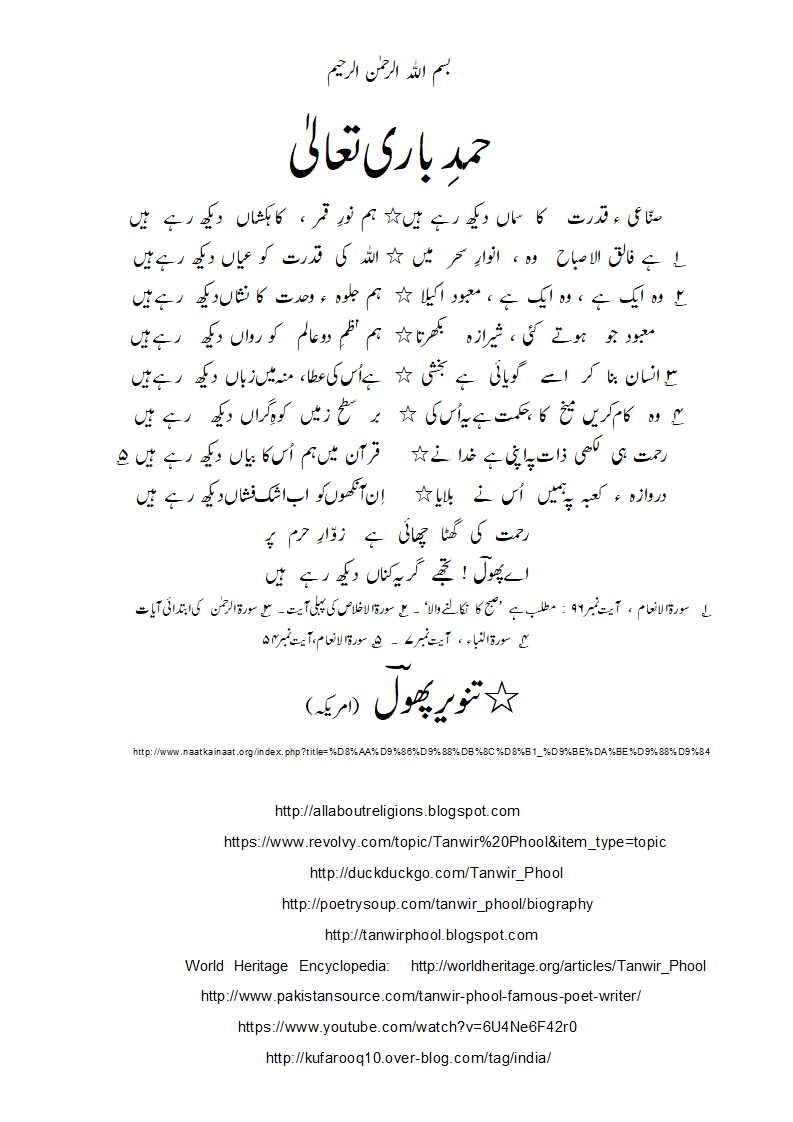 بسم اللہ الرحمٰن الرحیم
حمدِ باری تعالیٰ
صنّاعیء قدرت کا سماں دیکھ رہے ہیں ☆ ہم نورِ قمر ، کاہکشاں دیکھ رہے ہیں
۱؎ ہے فالق الاصباح وہ ، انوارِ سحر میں ☆ اللہ کی قدرت کو عیاں دیکھ رہے ہیں
۲؎ وہ ایک ہے ، وہ ایک ہے ، معبود اکیلا ☆ ہم جلوہ ء وحدت کا نشاں دیکھ رہے ہیں
معبود جو ہوتے کئی ، شیرازہ بکھرتا ☆ ہم نظمِ دوعالم کو رواں دیکھ رہے ہیں
۳؎ انسان بنا کر اسے گویائی ہے بخشی ☆ ہے اُس کی عطا ، منہ میں زباں دیکھ رہے ہیں
۴؎ وہ کام کریں میخ کا ، حکمت ہے یہ اُس کی ☆ بر سطحِ زمیں کوہِ گراں دیکھ رہے ہیں
رحمت ہی لکھی ذات پہ اپنی ہے خدا نے ☆ قرآن میں ہم اُس کا بیاں دیکھ رہے ہیں ۵؎
دروازہ ء کعبہ پہ ہمیں اُس نے بلایا ☆ اِن آنکھوں کو اب اشک فشاں دیکھ رہے ہیں
رحمت کی گھٹا چھائی ہے زوّارِ حرم پر
اے پھولؔ ! تجھے گریہ کناں دیکھ رہے ہیں
۱؎ سورۃ الانعام ، آیت نمبر ۹۶ : مطلب ہے ’صبح کا نکالنے والا‘ ۔ ۲؎ سورۃ الاخلاص کی پہلی آیت ۔ ۳؎ سورۃ الرحمٰن کی ابتدائی آیات
۴؎ سورۃ النباء ، آیت نمبر ۷ ۔ ۵؎ سورۃ الانعام، آیت نمبر ۵۴
☆ تنویر پھولؔ (امریکہ)
http://www.naatkainaat.org/index.php?title=%D8%AA%D9%86%D9%88%DB%8C%D8%B1_%D9%BE%DA%BE%D9%88%D9%84
http://allaboutreligions.blogspot.com
https://www.revolvy.com/topic/Tanwir%20Phool&item_type=topic
http://duckduckgo.com/Tanwir_Phool
http://poetrysoup.com/tanwir_phool/biography
http://tanwirphool.blogspot.com
World Heritage Encyclopedia: http://worldheritage.org/articles/Tanwir_Phool
http://www.pakistansource.com/tanwir-phool-famous-poet-writer/
https://www.youtube.com/watch?v=6U4Ne6F42r0
http://kufarooq10.over-blog.com/tag/india/